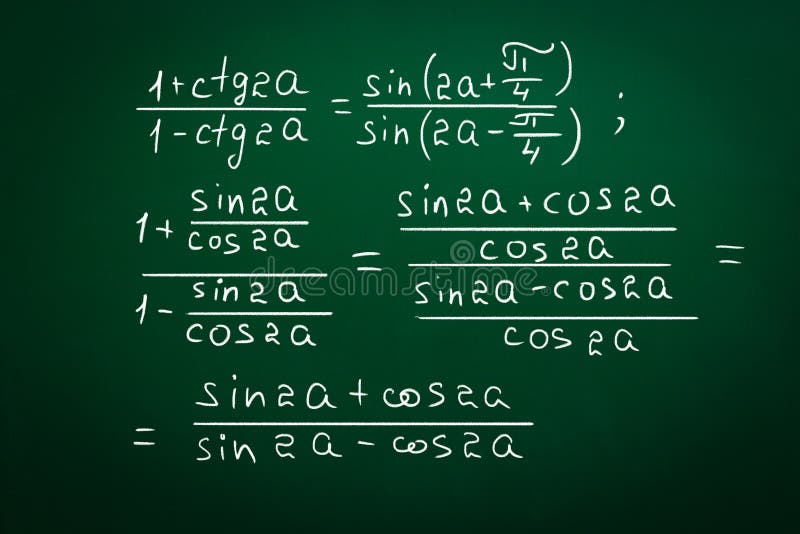 (1+ctg2a)/(1-ctg2a) = sin(2a+π/4)/sin(2a-π/4) ;
(1+sin2a/cos2a)/(1-sin2a/cos2a) = ((sin2a+cos2a)/cos2a)/((sin2a-cos2a)/cos2a) =
= (sin2a+cos2a)/(sin2a-cos2a)
dreamstime